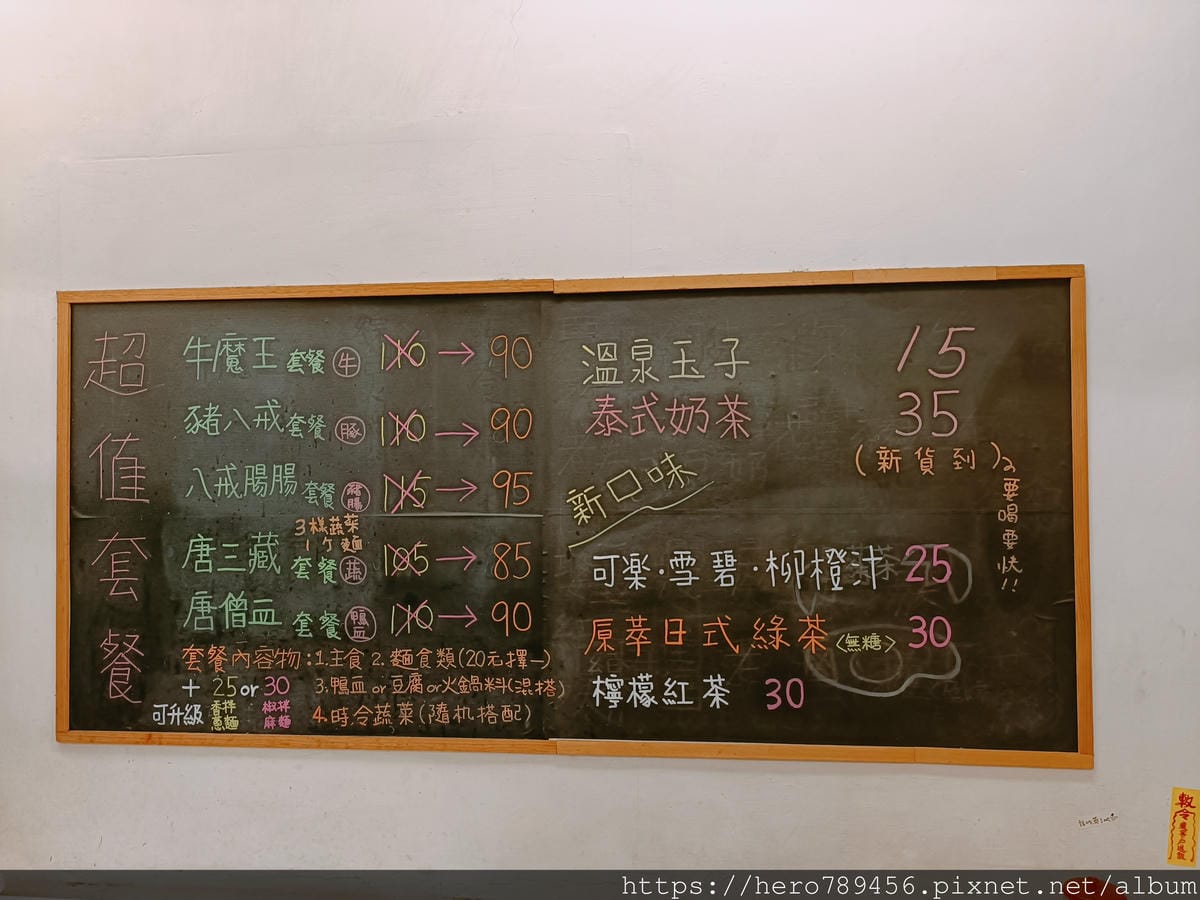 超值套餐
牛魔王 套餐 牛 110 → 90
豬八戒 套餐 豚 110 → 90
八戒腸腸 套餐 豬腸 115 → 95
3樣蔬菜
1个麵
唐三藏 套餐 蔬 105 → 85
唐僧血 套餐 鴨血 110 → 90
套餐內容物:1.主食 2.麵食類(20元擇一)
3.鴨血or豆腐or火鍋料(混搭)
4.時令蔬菜(隨机搭配)
+ 25 or 30
可升級 香蔥拌麵 椒麻拌麵
溫泉玉子 15
泰式奶茶 35
(新貨到)
要喝要快!!
新口味
可楽·雪碧·柳橙汁 25
原萃日式綠茶<無糖> 30
檸檬紅茶 30
敕令
https://hero789456.pixnet.net/album